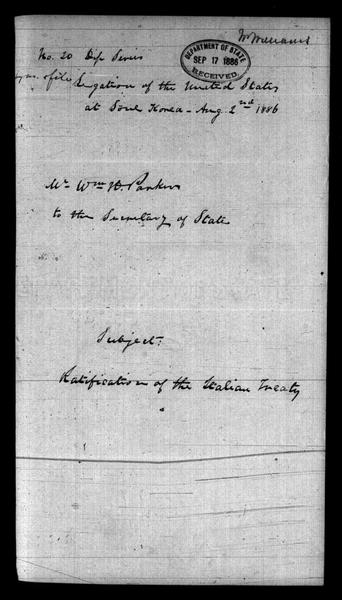 No. 20 Dip Series
DEPARTMENT OF STATE
SEP 17 1886
RECEIVED
Legation of the United States
at Soul Korea - Aug 2nd 1886
Mr Wm H. Parker
to the Secretary of State
Subject:
Ratification of the Italian Treaty